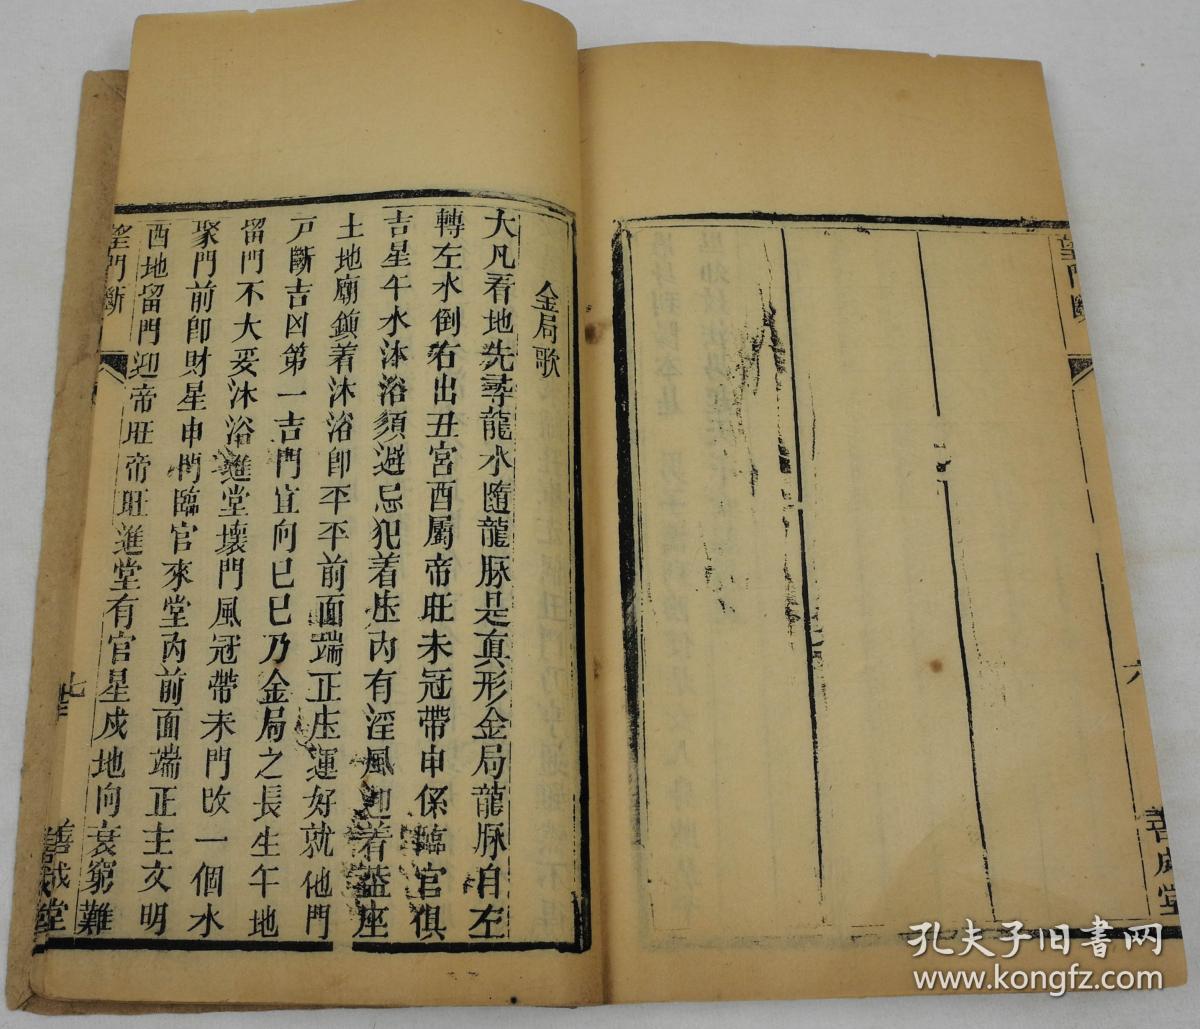 金局歌
大凡看地先尋龍水隨龍脉是真形金局龍脉自左
轉左水倒右出丑宮酉屬帝旺未冠帶申係臨官俱
吉星午水沐浴須避忌犯着庄內有淫風迎着益座
土地廟鎮着沐浴即平平前面端正庄運好就他門
戸斷吉凶第一吉門宜向巳巳乃金局之長生午地
留門不大妥沐浴進堂壞門風冠帶未門改一個水
聚門前即財星申門臨官來堂內前面端正主文明
酉地留門迎帝旺帝旺進堂有官星戍地向衰窮難
望門斷
七
善成堂
望門斷
六
善成堂
孔夫子旧书网
www.kongfz.com